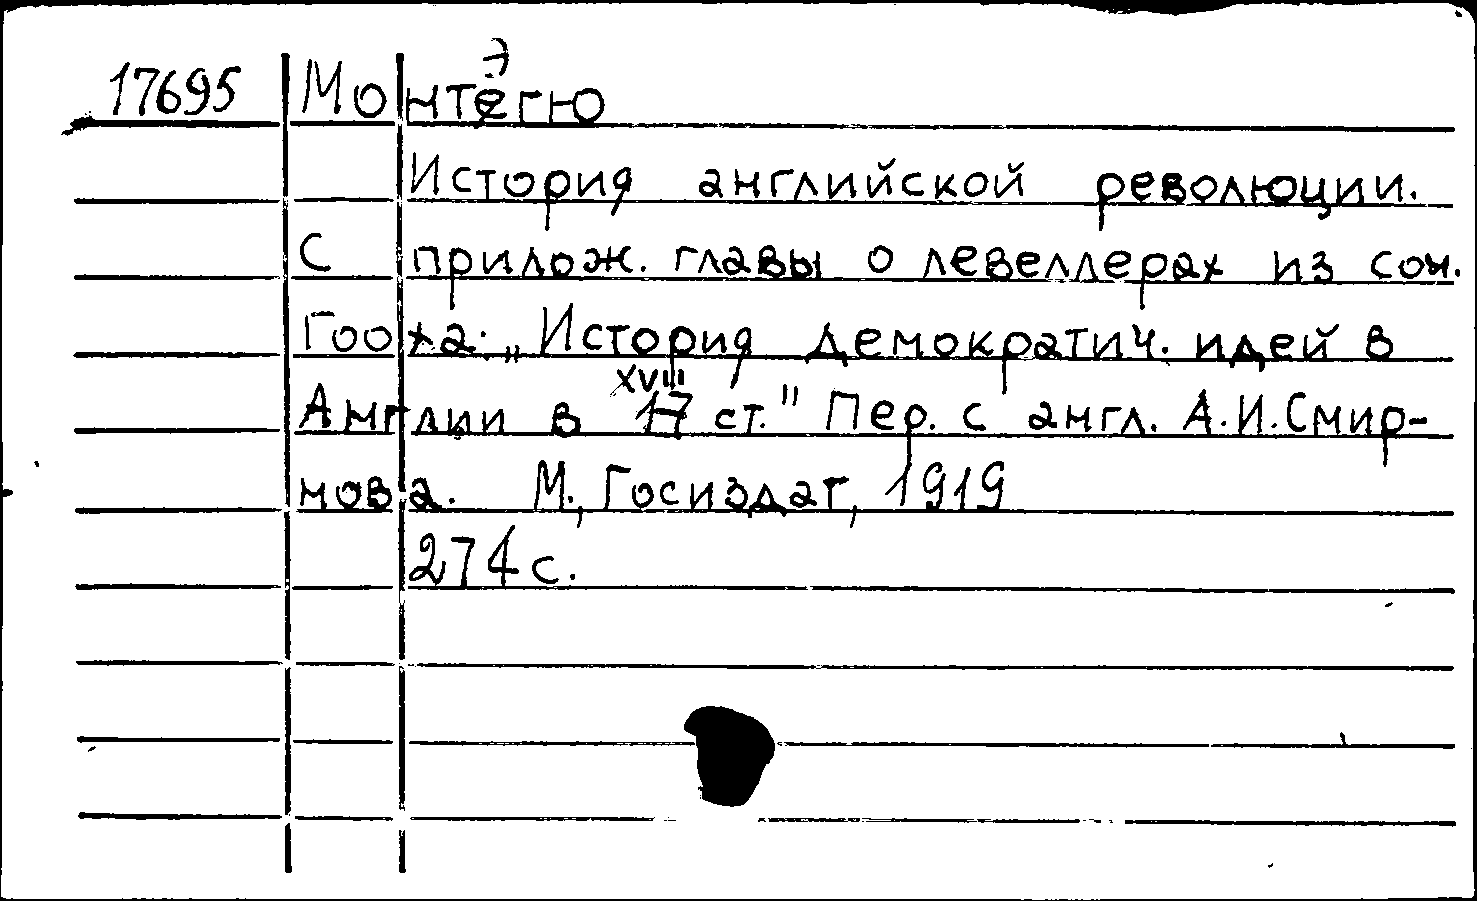 17695 Монтэгю
История английской революции.
С прилож. главы о левеллерах из соч.
Гооха: „История демократич. идей в
Англии в XVIII ст." Пер. с англ. А.И.Смир-
нова. М., Госиздат, 1919
274 с.